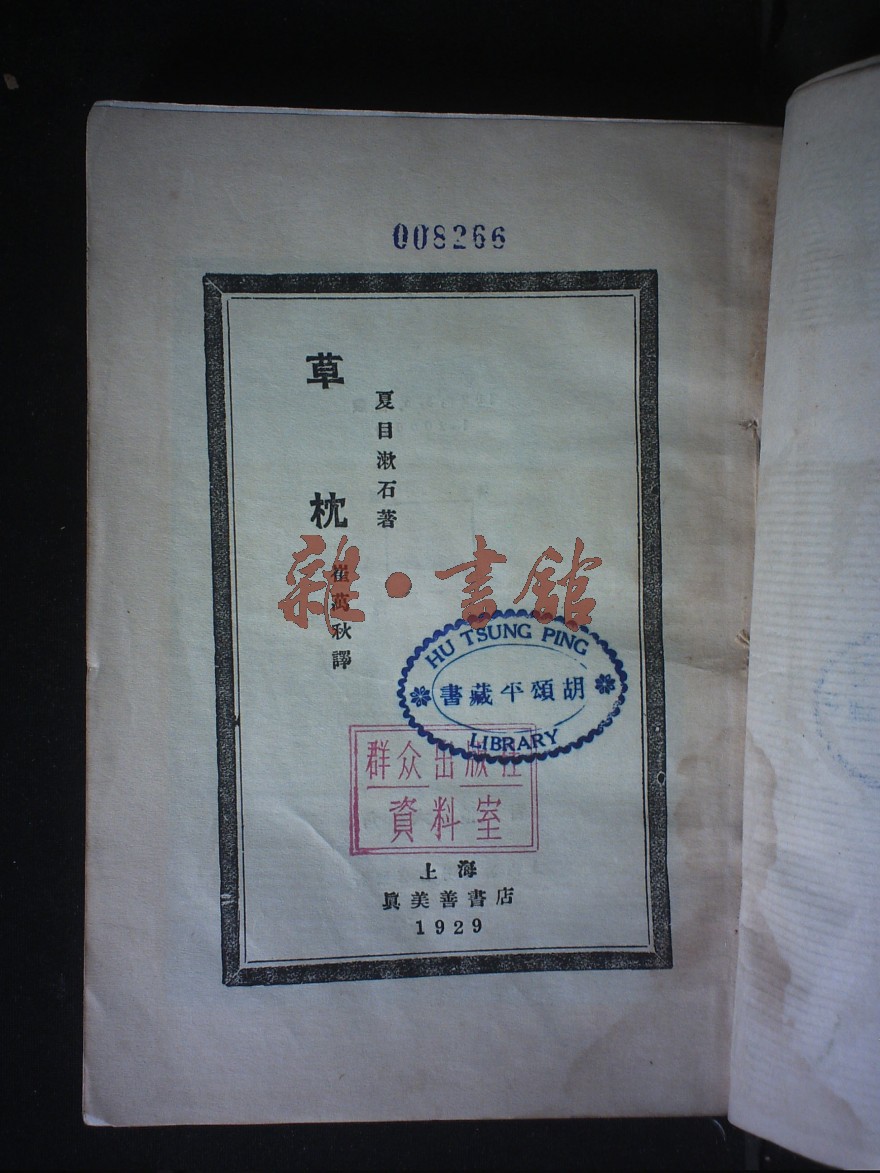 008266
草枕
夏目漱石著
崔萬秋譯
雜·書館
HU TSUNG PING
胡頌平藏書
LIBRARY
群众出版社
資料室
上海
眞美善書店
1929